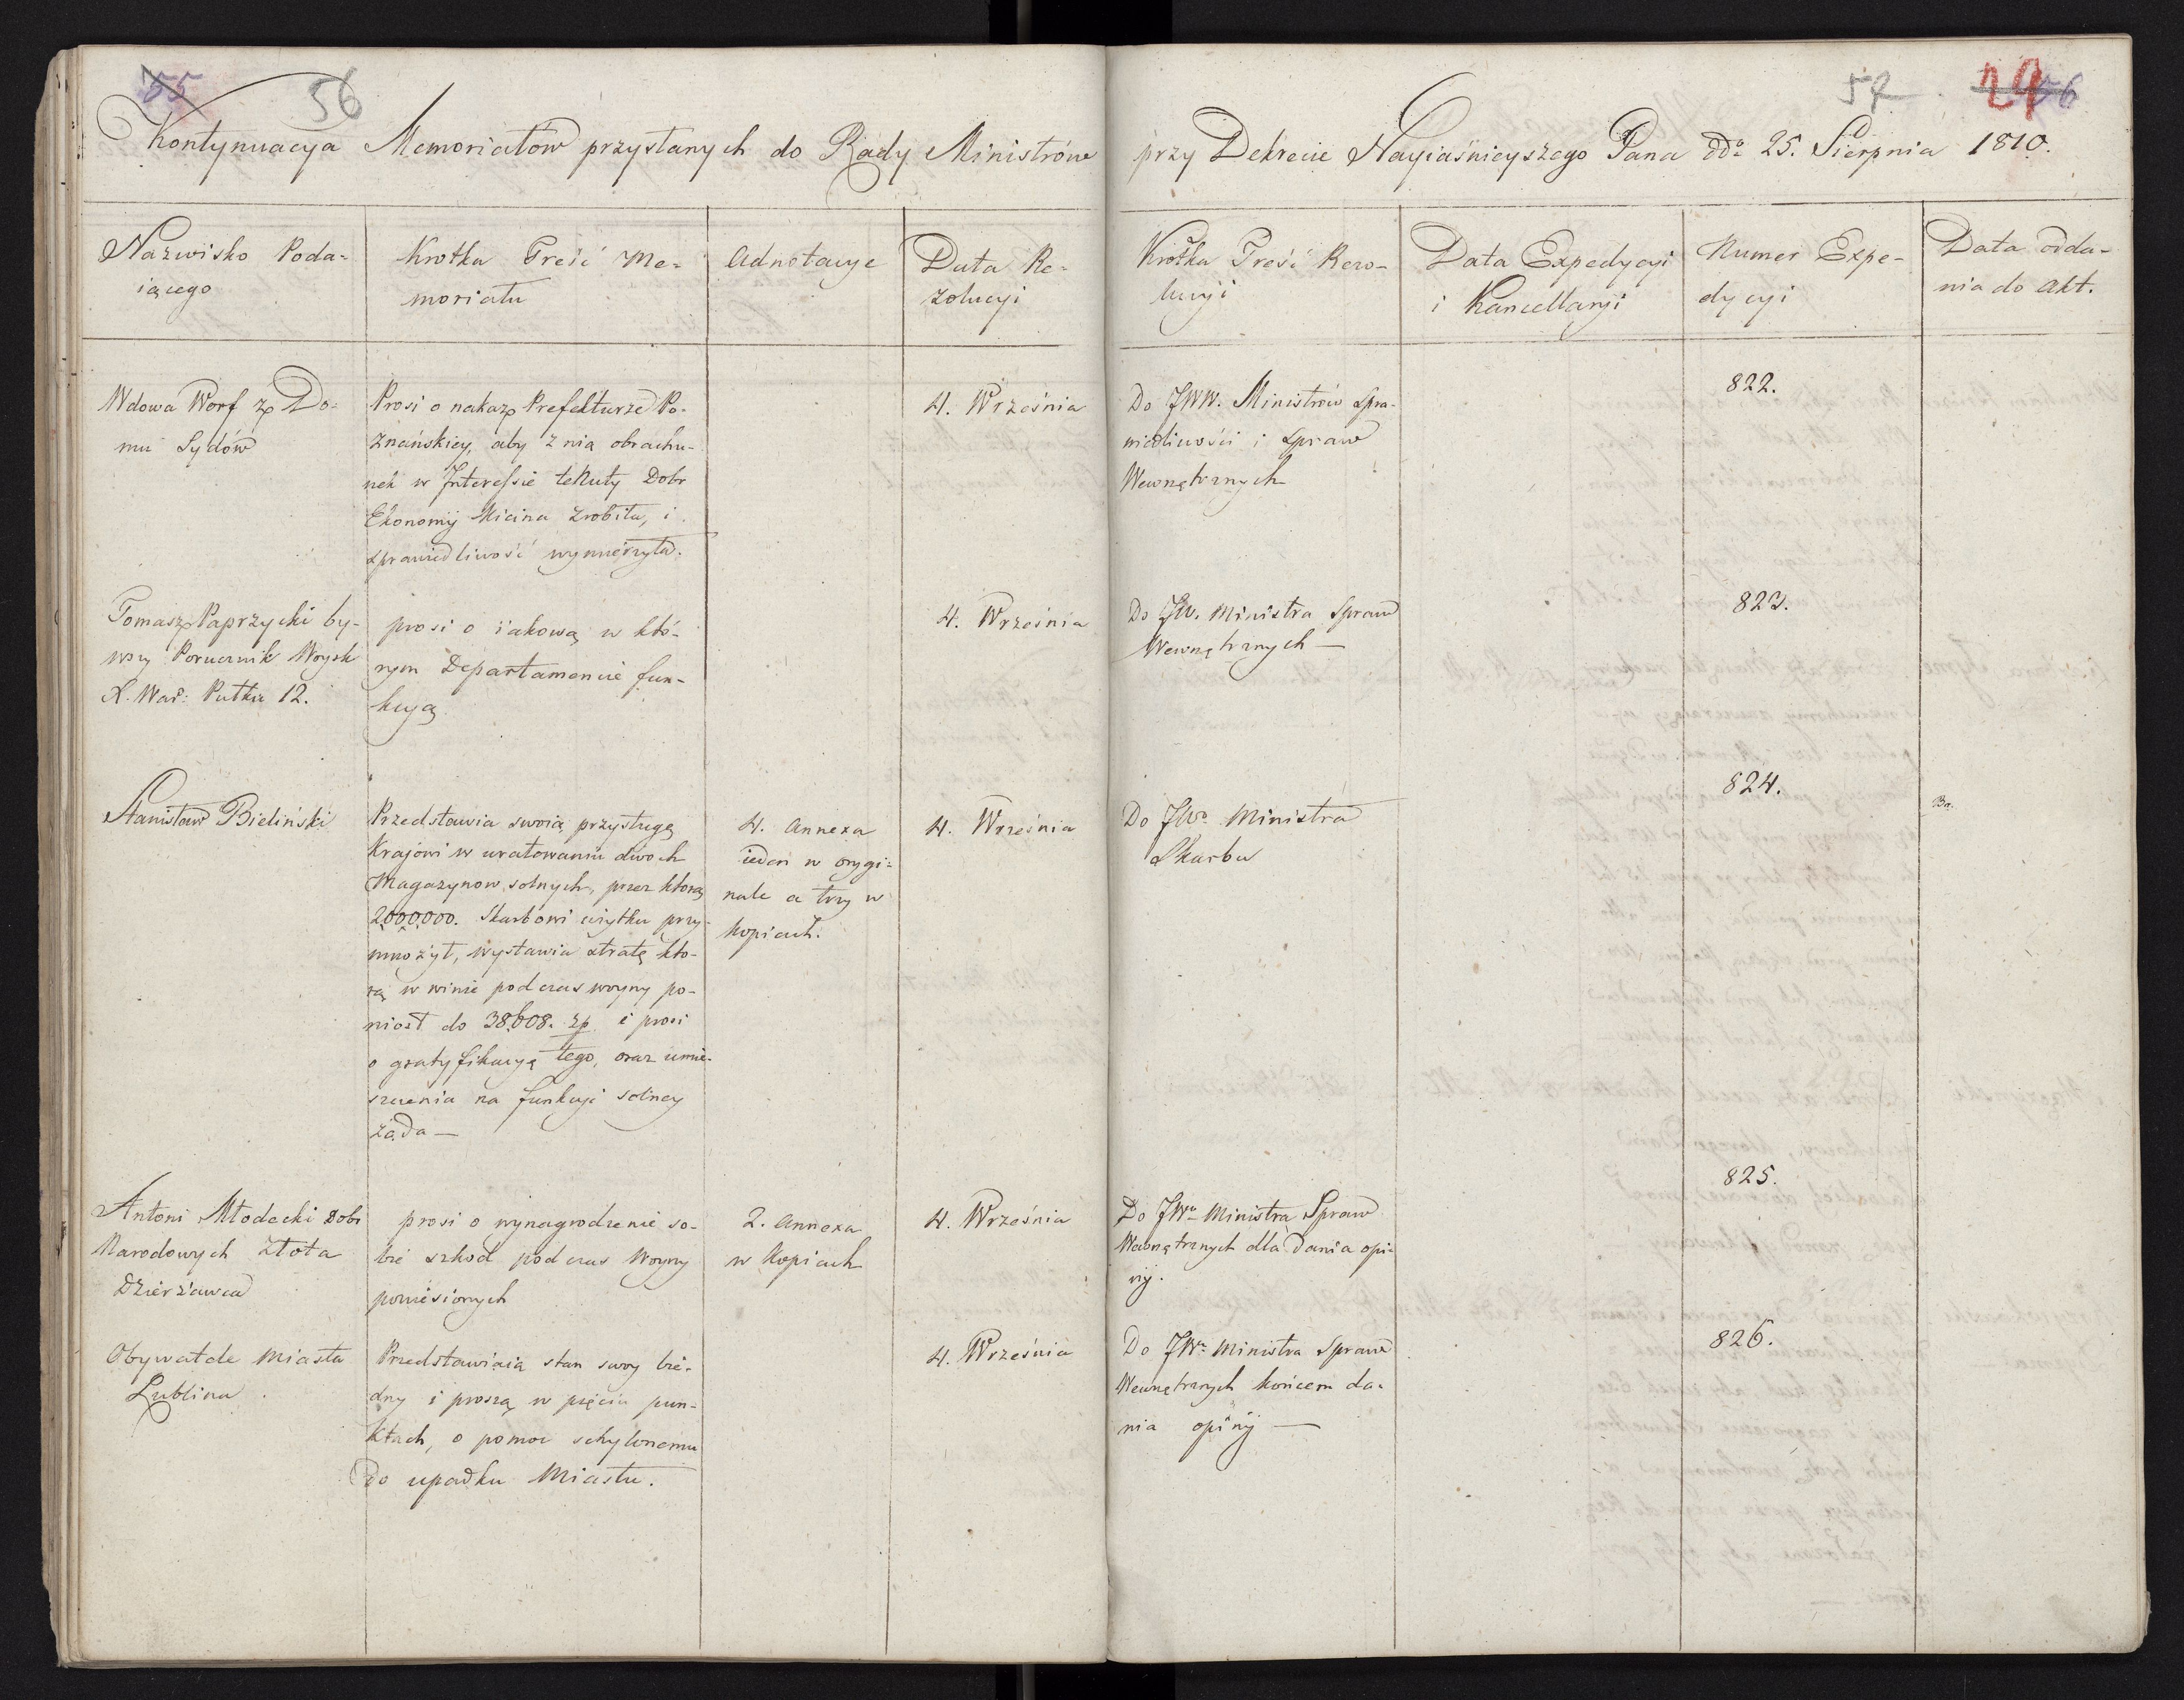 55 56
57 29 56
Kontynuacya Memoriałów przysłanych do Rady Ministrów przy Dekrecie Nayiaśnieyszego Pana ddo 25. Sierpnia 1810.
Nazwisko Poda-
iącego
Krotka Treść Me-
moriału
Adnotacye
Data Re-
zolucyi
Krotka Treść Rezo-
lucyi
Data Expedycyi
i Kancellaryi
Numer Expe-
dycyi
Data odda-
nia do Akt.
Wdowa Worf z Do-
mu Sydów
Prosi o nakaz Prefekturze Po-
znańskiey, aby z nią obrachu-
nek w Interessie tenuty Dobr
Ekonomij Micina zrobiła, i
sprawiedliwość wymierzyła.
4. Września
Do JWW. Ministrów Spra-
wiedliwości i Spraw
Wewnętrznych
822.
Tomasz Paprzycki by-
wszy Porucznik Woysk
X. War: Pułku 12.
prosi o iakową w któ-
rym Departamencie fun-
kcyą
4. Września
Do JW. Ministra Spraw
Wewnętrznych —
823.
Stanisław Bieliński
Przedstawia swoią przysługę
Krajowi w uratowaniu dwoch
Magazynow solnych, przez ktorą
2,000,000. Skarbowi użytku przy-
mnożył, wystawia stratę kto-
rą w winie podczas woyny po-
niosł do 38,608. zp. i prosi
o gratyfikacyę tego, oraz umie-
szczenia na funkcyi solney
żąda —
4. Annexa
ieden w orygi-
nale a trzy w
kopiach.
4. Września
Do JWo Ministra
Skarbu
824.
Br.
Antoni Młodecki Dobr
Narodowych Złota
Dzierżawca
prosi o wynagrodzenie so-
bie szkod podczas Woyny
poniesionych
2. Annexa
w Kopiach
4. Września
Do JWo Ministra Spraw
Wewnętrznych dla dania opi-
nij.
825.
Obywatele Miasta
Lublina
Przedstawiaią stan swoy bie-
dny i proszą w pięciu pun-
ktach, o pomoc schylonemu
do upadku Miastu.
4. Września
Do JWo Ministra Spraw
Wewnętrznych końcem da-
nia opinij —
826.